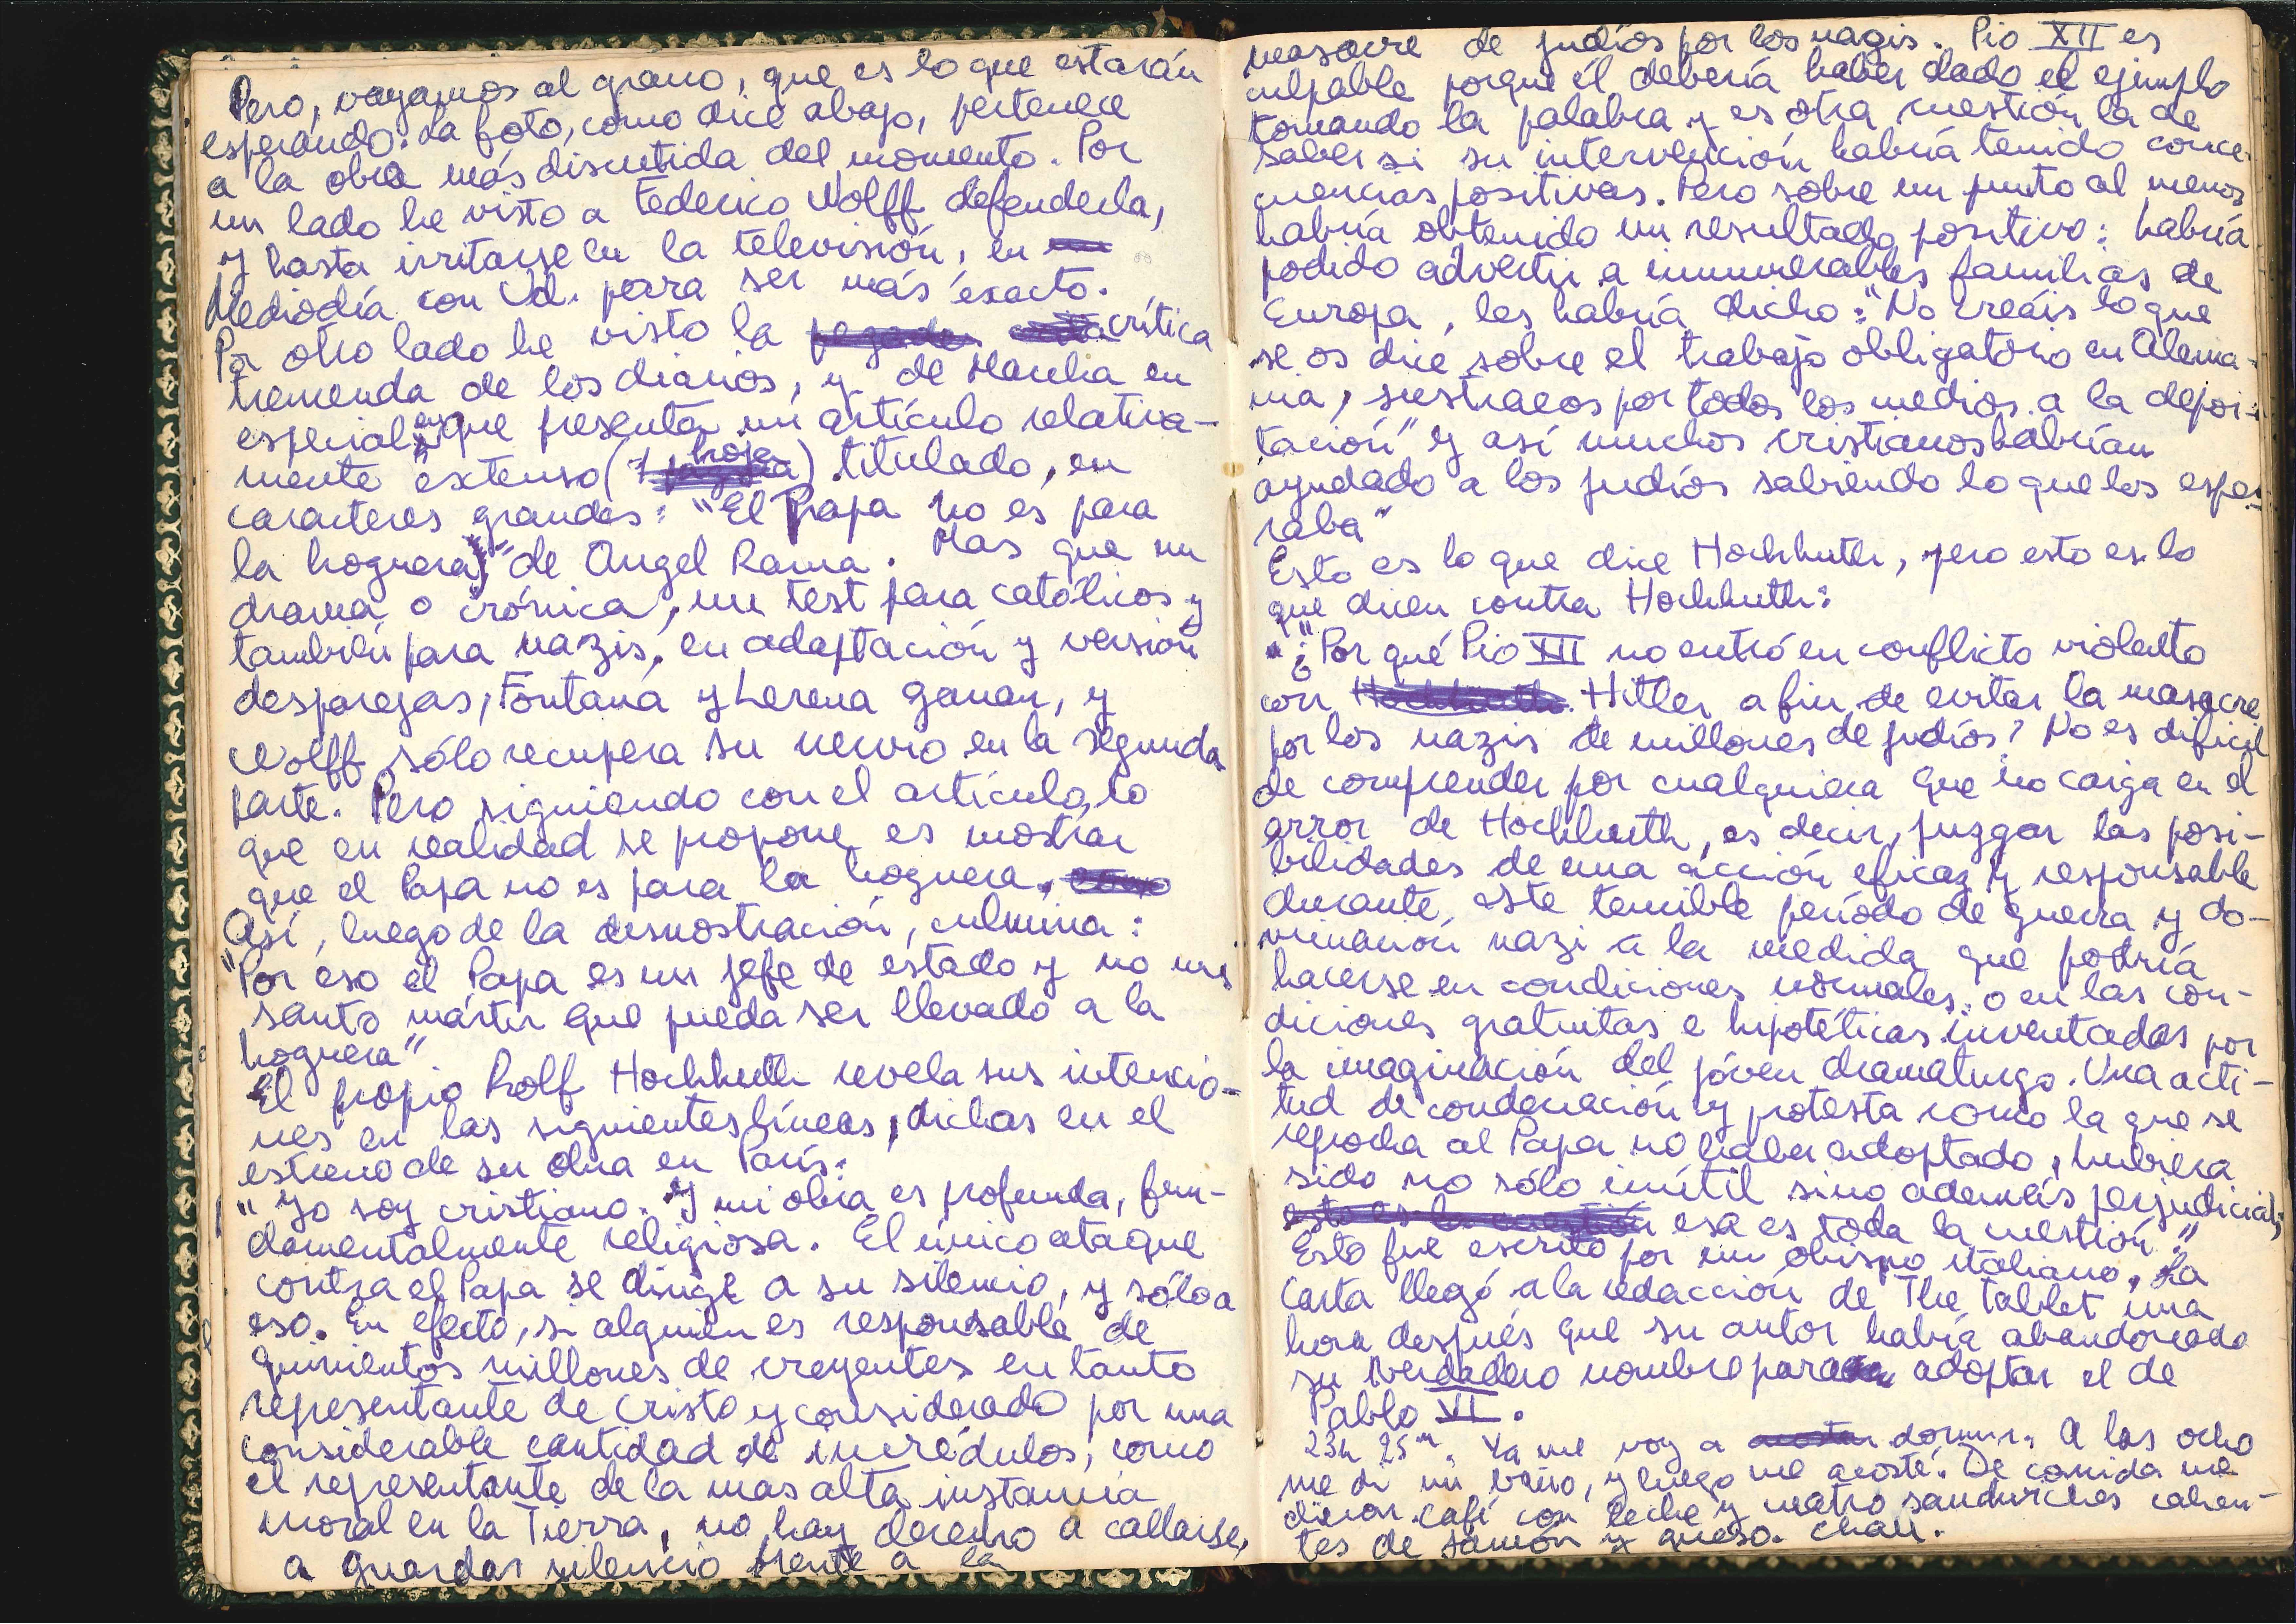 Pero, vayamos al grano, que es lo que estarán
esperando. La foto, como dice abajo, pertenece
a la obra más discutida del momento. Por
un lado he visto a Federico Wolff defenderla,
y hasta irritarse en la televisión, en
Mediodía con Ud. para ser más exacto.
Por otro lado he visto la crítica
tremenda de los diarios, y de Marcha en
especial en que presenta un artículo relativa-
mente extenso (1 hoja) titulado, en
caracteres grandes: "El Papa no es para
la hoguera" de Angel Rama. Mas que un
drama o crónica, un test para católicos y
también para nazis, en adaptación y versión
desparejas, Fontana y Lerena ganan, y
Wolff sólo recupera su nervio en la segunda
parte. Pero siguiendo con el artículo, lo
que en realidad se propone es mostrar
que el Papa no es para la hoguera.
Así, luego de la desmostración, culmina:
"Por eso el Papa es un jefe de estado y no un
santo mártir que pueda ser llevado a la
hoguera"
El propio Rolf Hochhuth revela sus intencio-
nes en las siguientes líneas, dichas en el
estreno de su obra en París:
"Yo soy cristiano. Y mi obra es profunda, fun-
damentalmente religiosa. El único ataque
contra el Papa se dirige a su silencio, y sólo a
eso. En efecto, si alguien es responsable de
quinientos millones de creyentes en tanto
representante de Cristo y considerado por una
considerable cantidad de incrédulos, como
el representante de la mas alta instancia
moral en la Tierra, no hay derecho a callarse,
a guardar silencio frente a la
masacre de judíos por los nazis. Pio XII es
culpable porque él debería haber dado el ejemplo
tomando la palabra y es otra cuestión la de
saber si su intervención habría tenido conce-
cuencias positivas. Pero sobre un punto al menos
habría obtenido un resultado positivo: habría
podido advertir a innumerables familias de
Europa, les habría dicho: "No creáis lo que
se os dice sobre el trabajo obligatorio en Alema-
nia, sustraeos por todos los medios a la depor-
tación" Y así muchos cristianos habrían
ayudado a los judíos sabiendo lo que los espe-
raba"
Esto es lo que dice Hochhuth, pero esto es lo
que dicen contra Hochhuth:
"¿Por qué Pio XII no entró en conflicto violento
con Hitler a fin de evitar la masacre
por los nazis de millones de judíos? No es difícil
de comprender por cualquiera que no caiga en el
error de Hochhuth, es decir, juzgar las posi-
bilidades de una acción eficaz y responsable
durante este terrible período de guerra y do-
minación nazi a la medida que podría
hacerse en condiciones normales, o en las con-
diciones gratuitas e hipotéticas inventadas por
la imaginación del jóven dramaturgo. Una acti-
tud de condenación y protesta como la que se
reprocha al Papa no haber adoptado, hubiera
sido no sólo inútil sino además perjudicial;
esto es la cuestión esa es toda la cuestión."
Esto fue escrito por un obispo italiano. La
carta llegó a la redacción de The Tablet una
hora después que su autor había abandonado
su verdadero nombre para adoptar el de
Pablo VI.
23h 25m. Ya me voy a dormir. A las ocho
me di un baño, y luego me acosté. De comida me
dieron café con leche y cuatro sandwiches calien-
tes de jamón y queso. Chau.